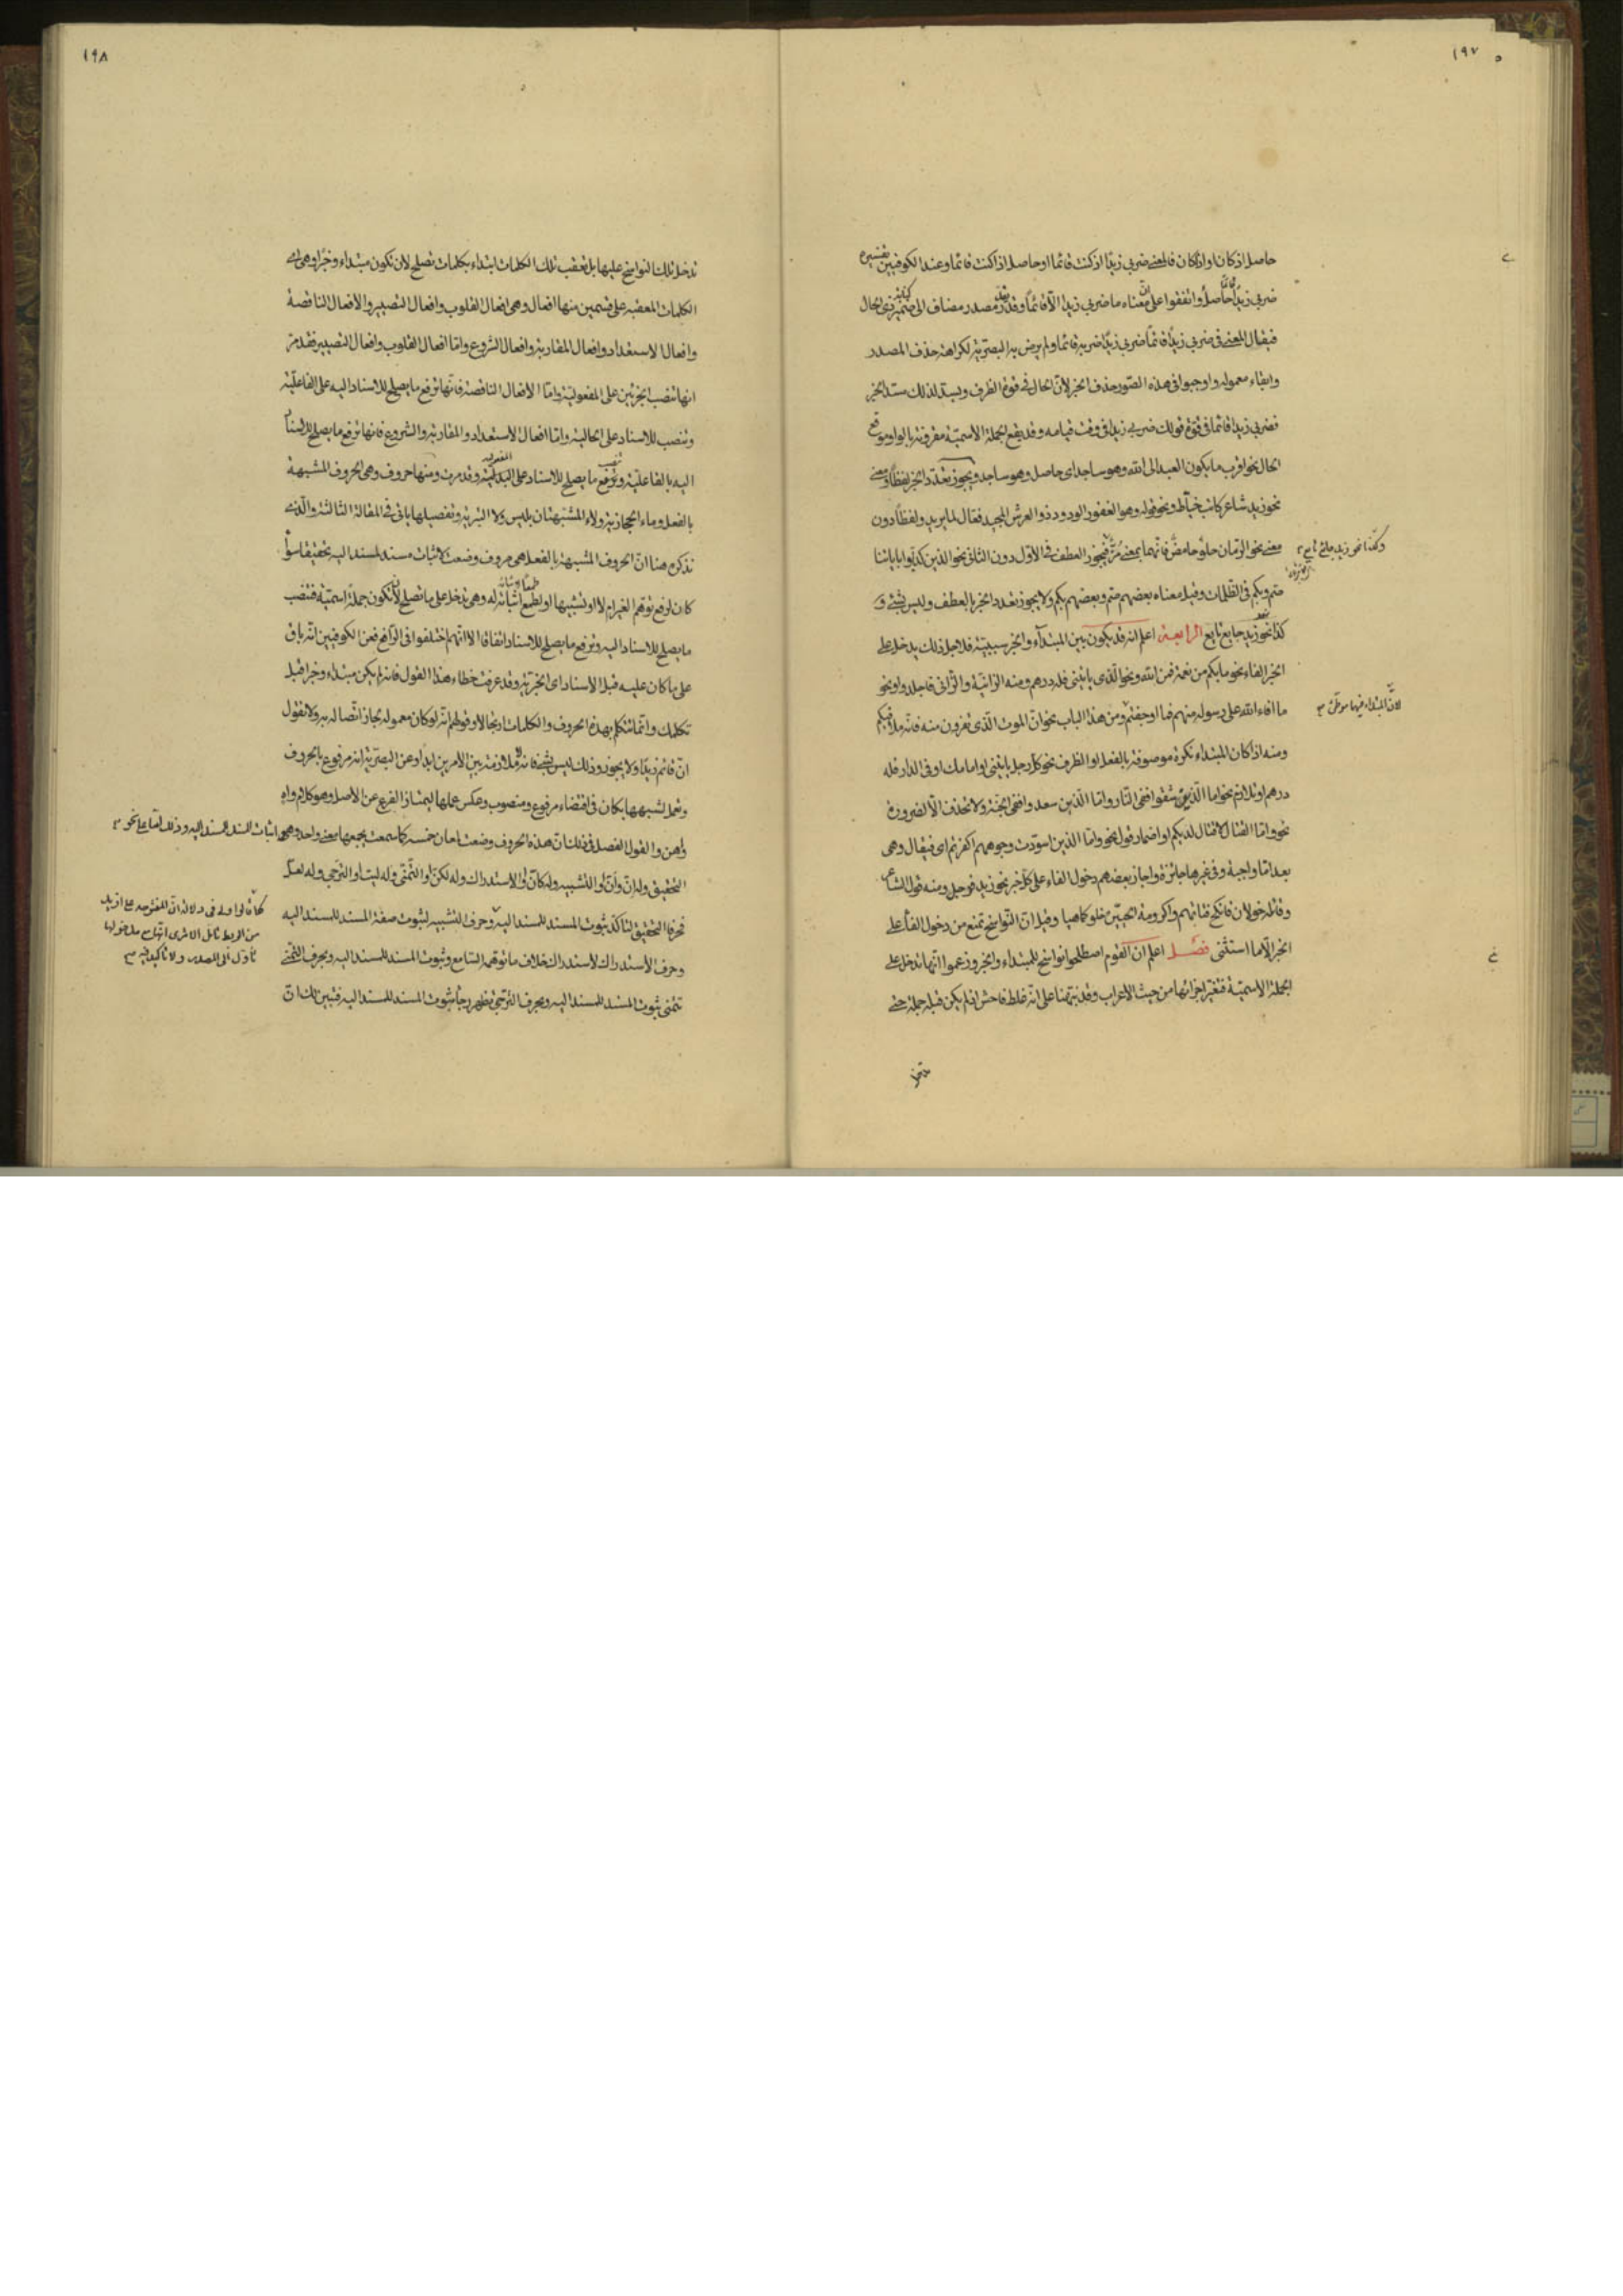 ١٩٧
حاصل اذ كان او اذا كان فالمعنى ضربى زيدا اذ كنت قائما او حاصل اذا كنت قائما وعند الكوفيين تفسيره
ضربى زيدا قائما حاصل واتفقوا على ان معناه ما ضربى زيدا الا قائما وقد مصدر مضاف الى ذى الحال
فيقال المعنى فى ضربى زيدا قائما ضربى زيدا ضربه قائما ولم يرض به البصرية لكراهة حذف المصدر
وابقاء معموله واوجبوا فى هذه الصور حذف الخبر لان الحال فى قوة الظرف ويسد لذلك مسد الخبر
فضربى زيدا قائما فى قوة قولك ضربى زيدا فى وقت قيامه وقد يقع الجملة الاسمية مقرونة بالواو موقع
الحال نحو اقرب ما يكون العبد الى الله وهو ساجد اى حاصل وهو ساجد ويجوز تعدد الخبر لفظا ومعنى
نحو زيد شاعر كاتب خياط ونحو قوله وهو الغفور الودود ذو العرش المجيد فعال لما يريد ولفظا دون
معنى نحو الرمان حلو حامض فانهما بمعنى مز فيجوز العطف فى الاول دون الثانى نحو الذين كذبوا باياتنا
وكذا نحو زيد جائع نايع
صم وبكم فى الظلمات وقيل معناه بعضهم صم وبعضهم بكم ولا يجوز تعدد الخبر بالعطف وليس بشئ و
كذا نحو زيد جايع نايع الرابعة اعلم انه قد يكون بين المبتداء والخبر سببية فلاجل ذلك يدخل على
الخبر الفاء نحو ما بكم من نعمة فمن الله ونحو الذى ياتينى فله درهم ومنه الزانية والزانى فاجلدوا ونحو
ما افاء الله على رسوله منهم فما اوجفتم ومن هذا الباب نحو ان الموت الذى تفرون منه فانه ملاقيكم
لان المبتداء فيها
ومنه اذا كان المبتداء نكرة موصوفة بالفعل او الظرف نحو كل رجل ياتينى او امامك او فى الدار فله
درهم وتلازم نحو اما الذين شقوا ففى النار واما الذين سعدوا ففى الجنة ولا تحذف الا لضرورة
نحو واما القتال لا قتال لديكم او اضمار قول نحو واما الذين اسودت وجوههم اكفرتم اى فيقال وهى
بعد اما واجبة وفى غيرها جائزة واجاز بعضهم دخول الفاء على كل خبر نحو زيد فوجل ومنه قول الشاعر
وقائلة خولان فانكح فتاتهم واكرومة الحيين خلو كما هيا وقيل ان النواسخ تمنع من دخول الفاء على
الخبر الا ما استثنى فصل اعلم ان القوم اصطلحوا نواسخ للمبتداء والخبر وزعموا انها تدخل على
الجملة الاسمية فتغير اجزائها من حيث الاعراب وقد نبهنا على انه غلط فاحش اذ لم يكن قبله جملة حتى
تدخل
١٩٨
تدخل تلك النواسخ عليها بل تعقب تلك الكلمات ابتداء بكلمات تصلح لان تكون مبتداء وخبرا وهى اى
الكلمات المعقبة على قسمين منها افعال وهى افعال القلوب وافعال التصيير والافعال الناقصة
وافعال الاستعداد وافعال المقاربة وافعال الشروع واما افعال القلوب وافعال التصيير فقد مر
انها تنصب الجزئين على المفعولية واما الافعال الناقصة فانها ترفع ما يصلح للاسناد اليه على الفاعلية
وتنصب للاسناد على الحالية واما افعال الاستعداد والمقاربة والشروع فانها ترفع ما يصلح للاسناد
اليه بالفاعلية وتنصب ما يصلح للاسناد على البدلية وقد مرت ومنها حروف وهى الحروف المشبهة
بالفعل وماء الحجازية ولاء المشبهتان بليس ولا التبرية وتفصيلها ياتى فى المقالة الثالثة والذى
نذكره هنا ان الحروف المشبهة بالفعل هى حروف وضعت لاثبات مسند لمسند اليه تحقيقا سواء
كان لرفع توهم الغير ام لا او تشبيها او لطمع اثباته له وهى تدخل على ما تصلح لان تكون جملة اسمية فتنصب
ما يصلح للاسناد اليه وترفع ما يصلح للاسناد اتفاقا الا انهم اختلفوا فى الرافع فعن الكوفيين انه باق
على ما كان عليه قبل الاسناد اى الخبرية وقد عرفت خطاء هذا القول فانه لم يكن مبتداء وخبرا قبل
تكلمك وانما تتكلم بهذه الحروف والكلمات ارتجالا وقولهم انه لو كان معموله لجاز اتصاله به ولا تقول
ان قائم زيدا ولا يجوز وذلك ليس بشئ فانه لا ملازمة بين الامرين ابدا وعن البصرية انه مرفوع بالحروف
وتعمل لشبهها بكان فى اقتضاء مرفوع ومنصوب وعكس عملها ليمتاز الفرع عن الاصل وهو كلام واه
واهن والقول الفصل فى ذلك ان هذه الحروف وضعت لمعان خمسة كما سمعت يجمعها معنى واحد وهى اثبات المسند للمسند اليه وذلك اما على نحو
التحقيق وله ان وان او التشبيه وله كان او الاستدراك وله لكن او التمنى وله ليت او الترجى وله لعل
فحرفا التحقيق لتاكد ثبوت المسند للمسند اليه وحرف التشبيه لثبوت صفة المسند للمسند اليه
وحرف الاستدراك لاستدراك خلاف ما توهمه السامع وثبوت المسند للمسند اليه وبحرف التمنى
تتمنى ثبوت المسند للمسند اليه وبحرف الترجى تظهر رجاء ثبوت المسند للمسند اليه فتبين لك ان